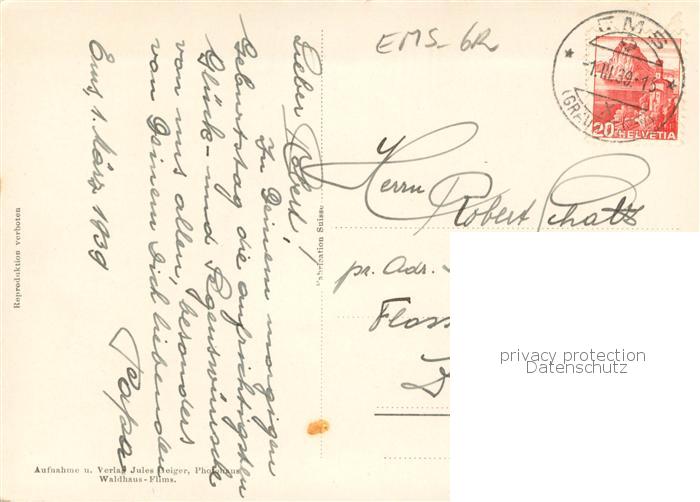 EMS-GR
EMS
1.III.39.-1
(GRAU
20
HELVETIA
Lieber Robert!
In Deinem morgigen
Geburtstag die aufrichtigsten
Glück- und Segenswünsche
von uns allen, besonders
von Deinem Dich liebenden
Papa
Ems, 1. März 1939
Herrn
Robert Schatz
pr. Adr.
Floss
D
Fabrication Suisse
Reproduktion verboten
Aufnahme u. Verlag Jules Geiger, Photohaus
Waldhaus-Flims.
privacy protection
Datenschutz